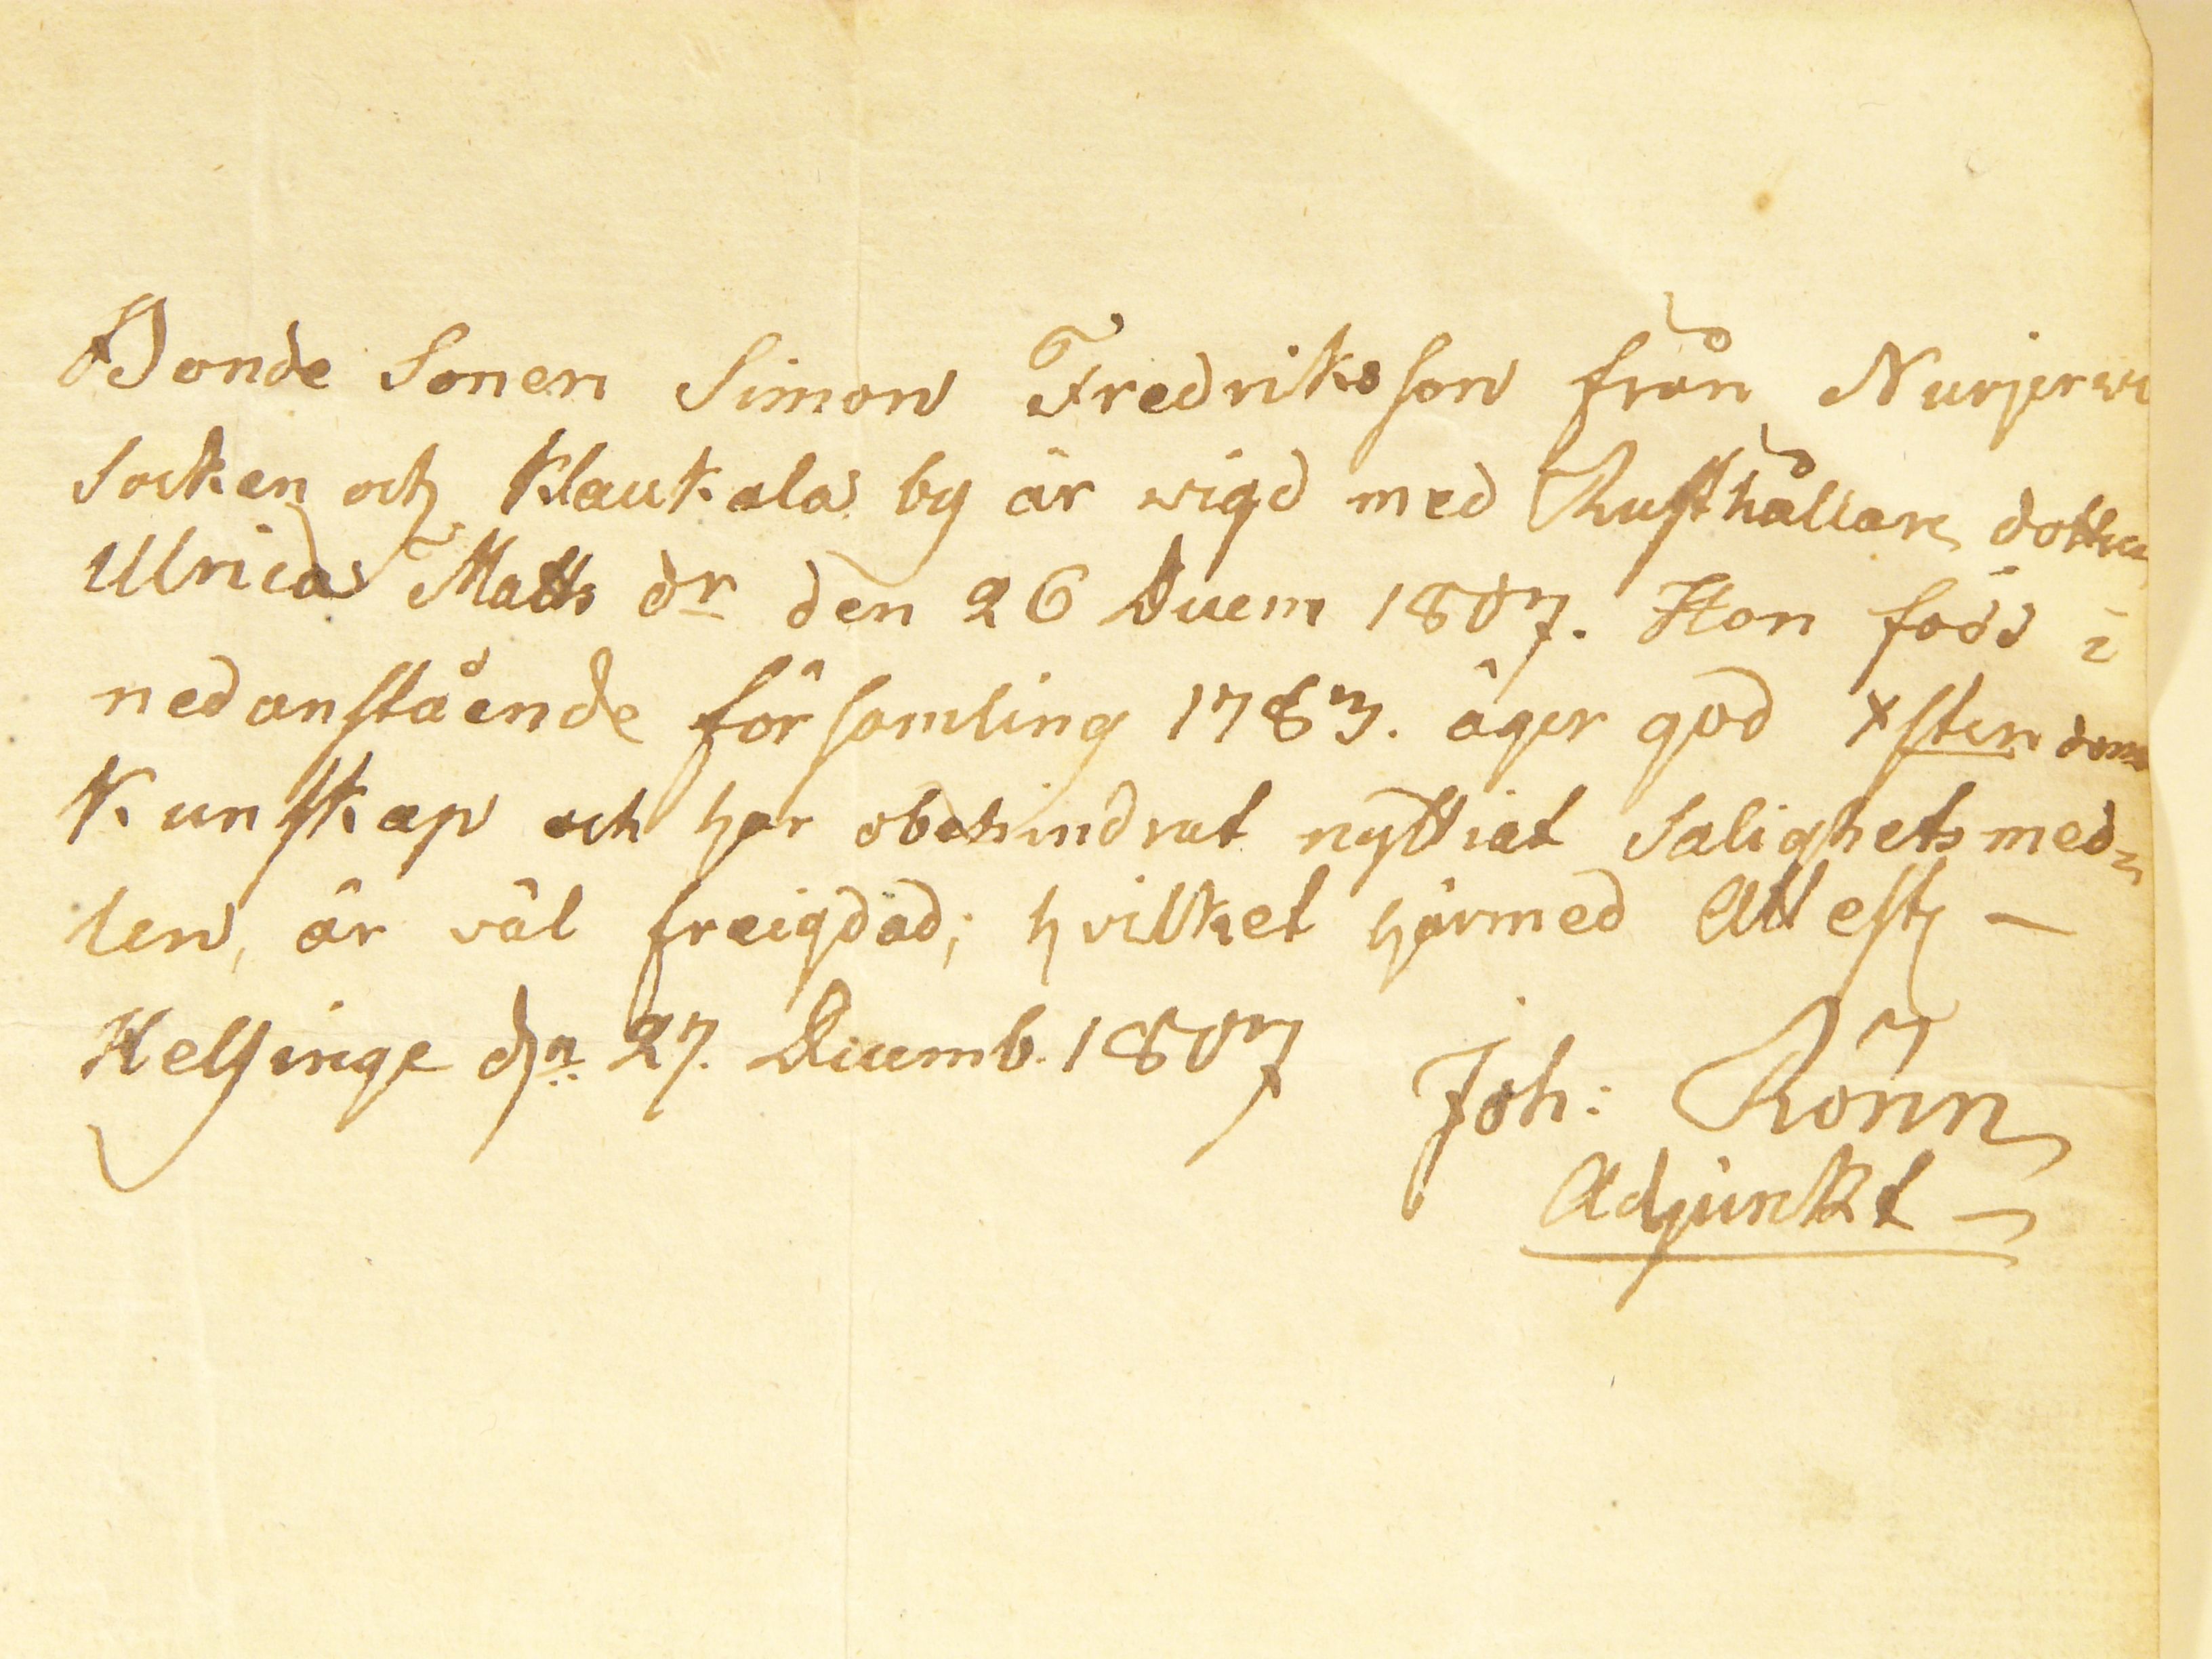 Bonde Sonen Simon Fredriksson från Nurjerwi
Socken och Klaukala by är wigd med Rusthållare dotter
Ulrica Matts dr den 26 Decem 1807. Hon född i
nedanstående församling 1783. äger god Xsten doms
Kunskap och har obehindrat nyttiat Salighets med=
len, är väl freigdad; hvilket härmed Attest —
Helsinge dn 27. Decemb. 1807
Joh: Rönn
Adjunkt —